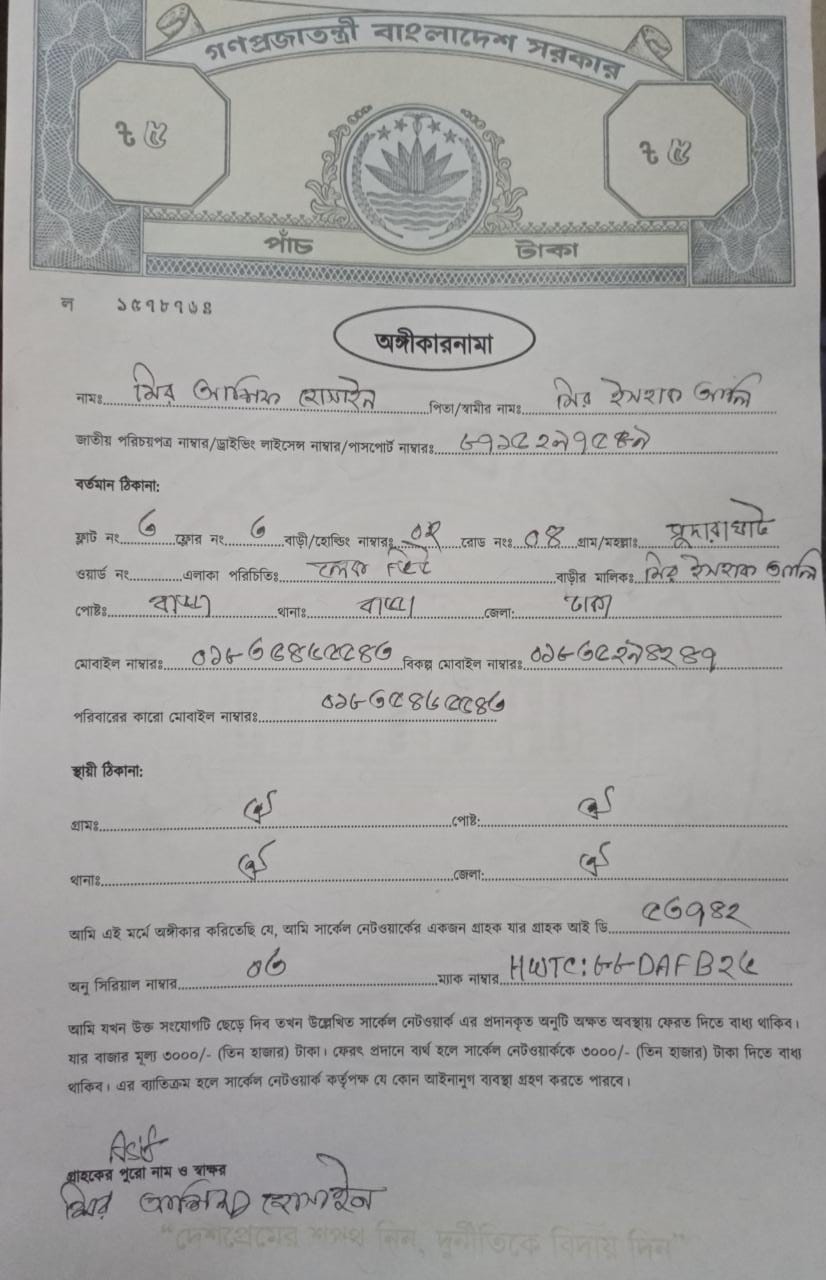 গণপ্রজাতন্ত্রী বাংলাদেশ সরকার
৳ ৫ ৳ ৫
পাঁচ টাকা
ন ১৫৭৮৭৬৪
অঙ্গীকারনামা
নামঃ মির আসিফ হোসাইন পিতা/স্বামীর নামঃ মির ইসহাক আলি
জাতীয় পরিচয়পত্র নাম্বার/ড্রাইভিং লাইসেন্স নাম্বার/পাসপোর্ট নাম্বারঃ
বর্তমান ঠিকানা:
ফ্লাট নং ৩ ফ্লোর নং ৩ বাড়ী/হোল্ডিং নাম্বারঃ ০২ রোড নংঃ ০৪ গ্রাম/মহল্লাঃ
ওয়ার্ড নং এলাকা পরিচিতিঃ বাড়ীর মালিকঃ মির ইসহাক আলি
পোষ্টঃ বাড্ডা থানাঃ বাড্ডা জেলা: ঢাকা
মোবাইল নাম্বারঃ বিকল্প মোবাইল নাম্বারঃ
পরিবারের কারো মোবাইল নাম্বারঃ
স্থায়ী ঠিকানা:
গ্রামঃ ঐ পোষ্ট: ঐ
থানাঃ ঐ জেলা: ঐ
আমি এই মর্মে অঙ্গীকার করিতেছি যে, আমি সার্কেল নেটওয়ার্কের একজন গ্রাহক যার গ্রাহক আই ডি ৫৩৭৪২
অনু সিরিয়াল নাম্বার ০৩ ম্যাক নাম্বার
আমি যখন উক্ত সংযোগটি ছেড়ে দিব তখন উল্লেখিত সার্কেল নেটওয়ার্ক এর প্রদানকৃত অনুটি অক্ষত অবস্থায় ফেরত দিতে বাধ্য থাকিব।
যার বাজার মূল্য ৩০০০/- (তিন হাজার) টাকা। ফেরৎ প্রদানে ব্যর্থ হলে সার্কেল নেটওয়ার্ককে ৩০০০/- (তিন হাজার) টাকা দিতে বাধ্য
থাকিব। এর ব্যতিক্রম হলে সার্কেল নেটওয়ার্ক কর্তৃপক্ষ যে কোন আইনানুগ ব্যবস্থা গ্রহণ করতে পারবে।
Asif
গ্রাহকের পুরো নাম ও স্বাক্ষর
মির আসিফ হোসাইন
"দেশপ্রেমের শপথ নিন, দুর্নীতিকে বিদায় দিন"